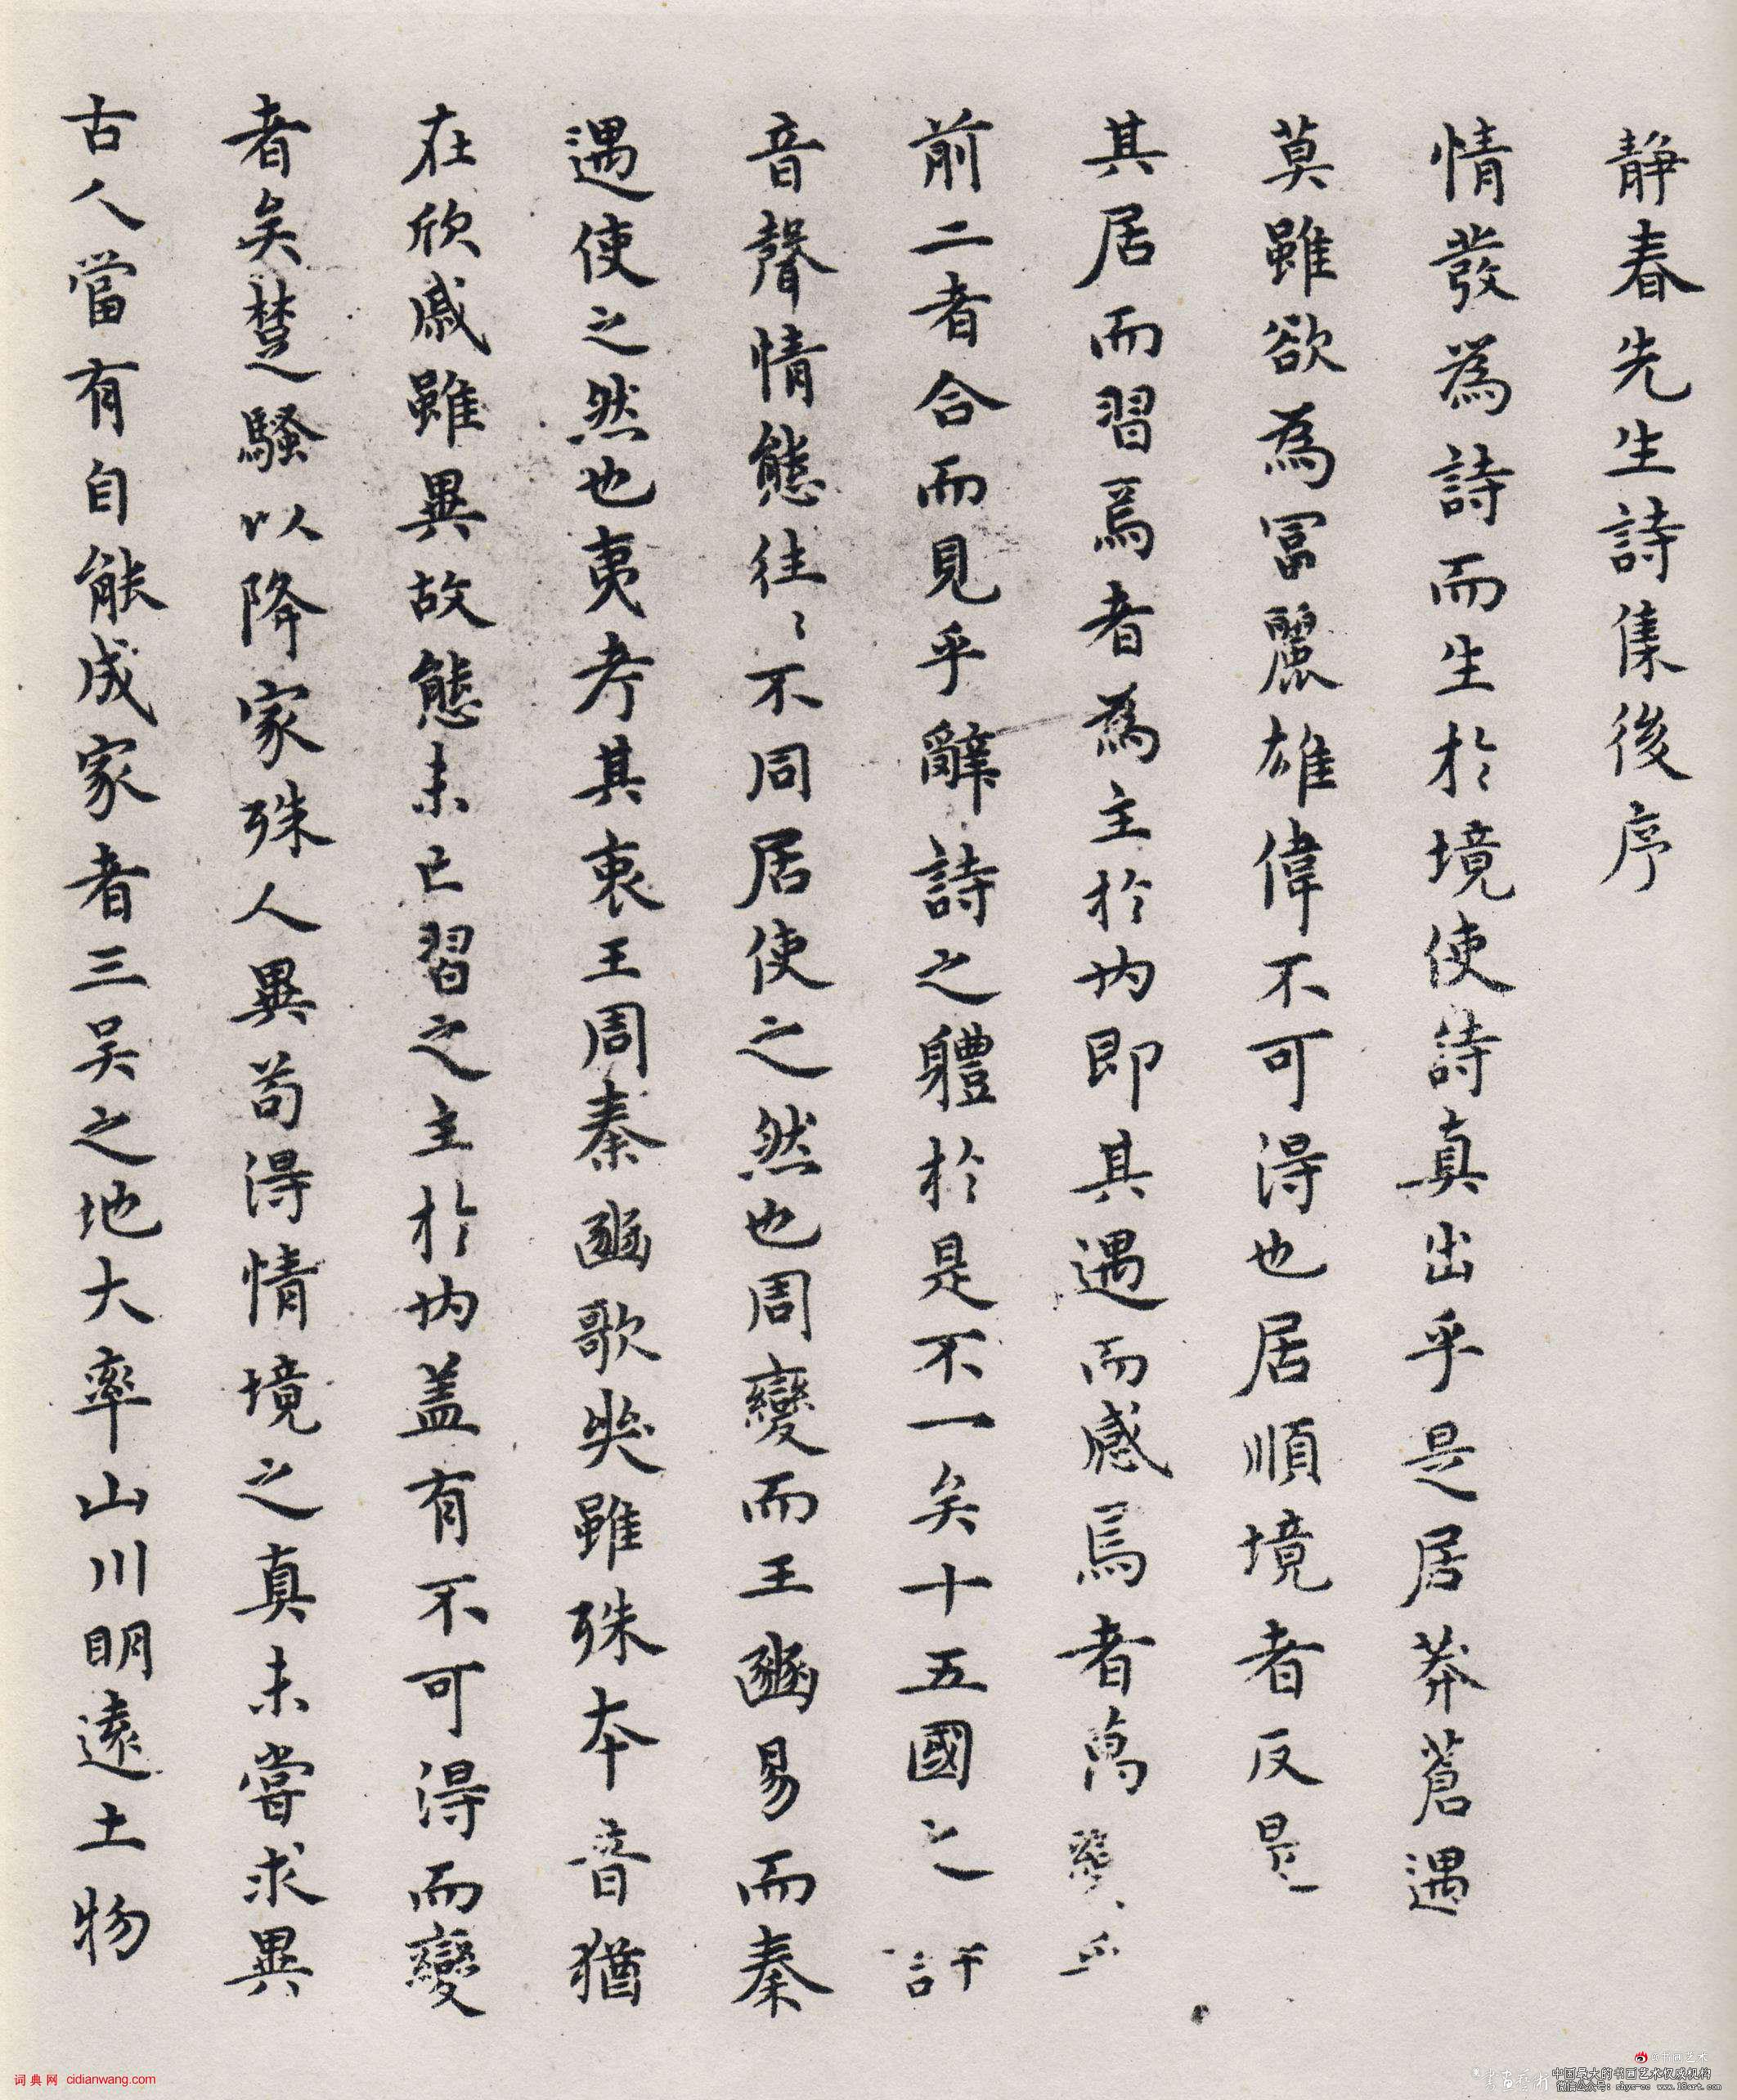 靜春先生詩集後序
情發為詩而生於境使詩真出乎是居莽蒼遇
莫雖欲為冨麗雄偉不可得也居順境者反是
其居而習焉者為主於内即其遇而感焉者萬變乎
前二者合而見乎辭詩之軆於是不一矣十五國之詩
音聲情態往〻不同居使之然也周變而王豳易而秦
遇使之然也夷考其衷王周秦豳歌哭雖殊本音猶
在欣戚雖異故態未已習之主於内盖有不可得而變
者矣楚騷以降家殊人異茍得情境之真未嘗求異
古人當有自能成家者三吴之地大率山川明遠土物
词典网 cidianwang.com
@书画艺术
中国最大的书画艺术权威机构
微信公众号: shys-cc www.18art.com